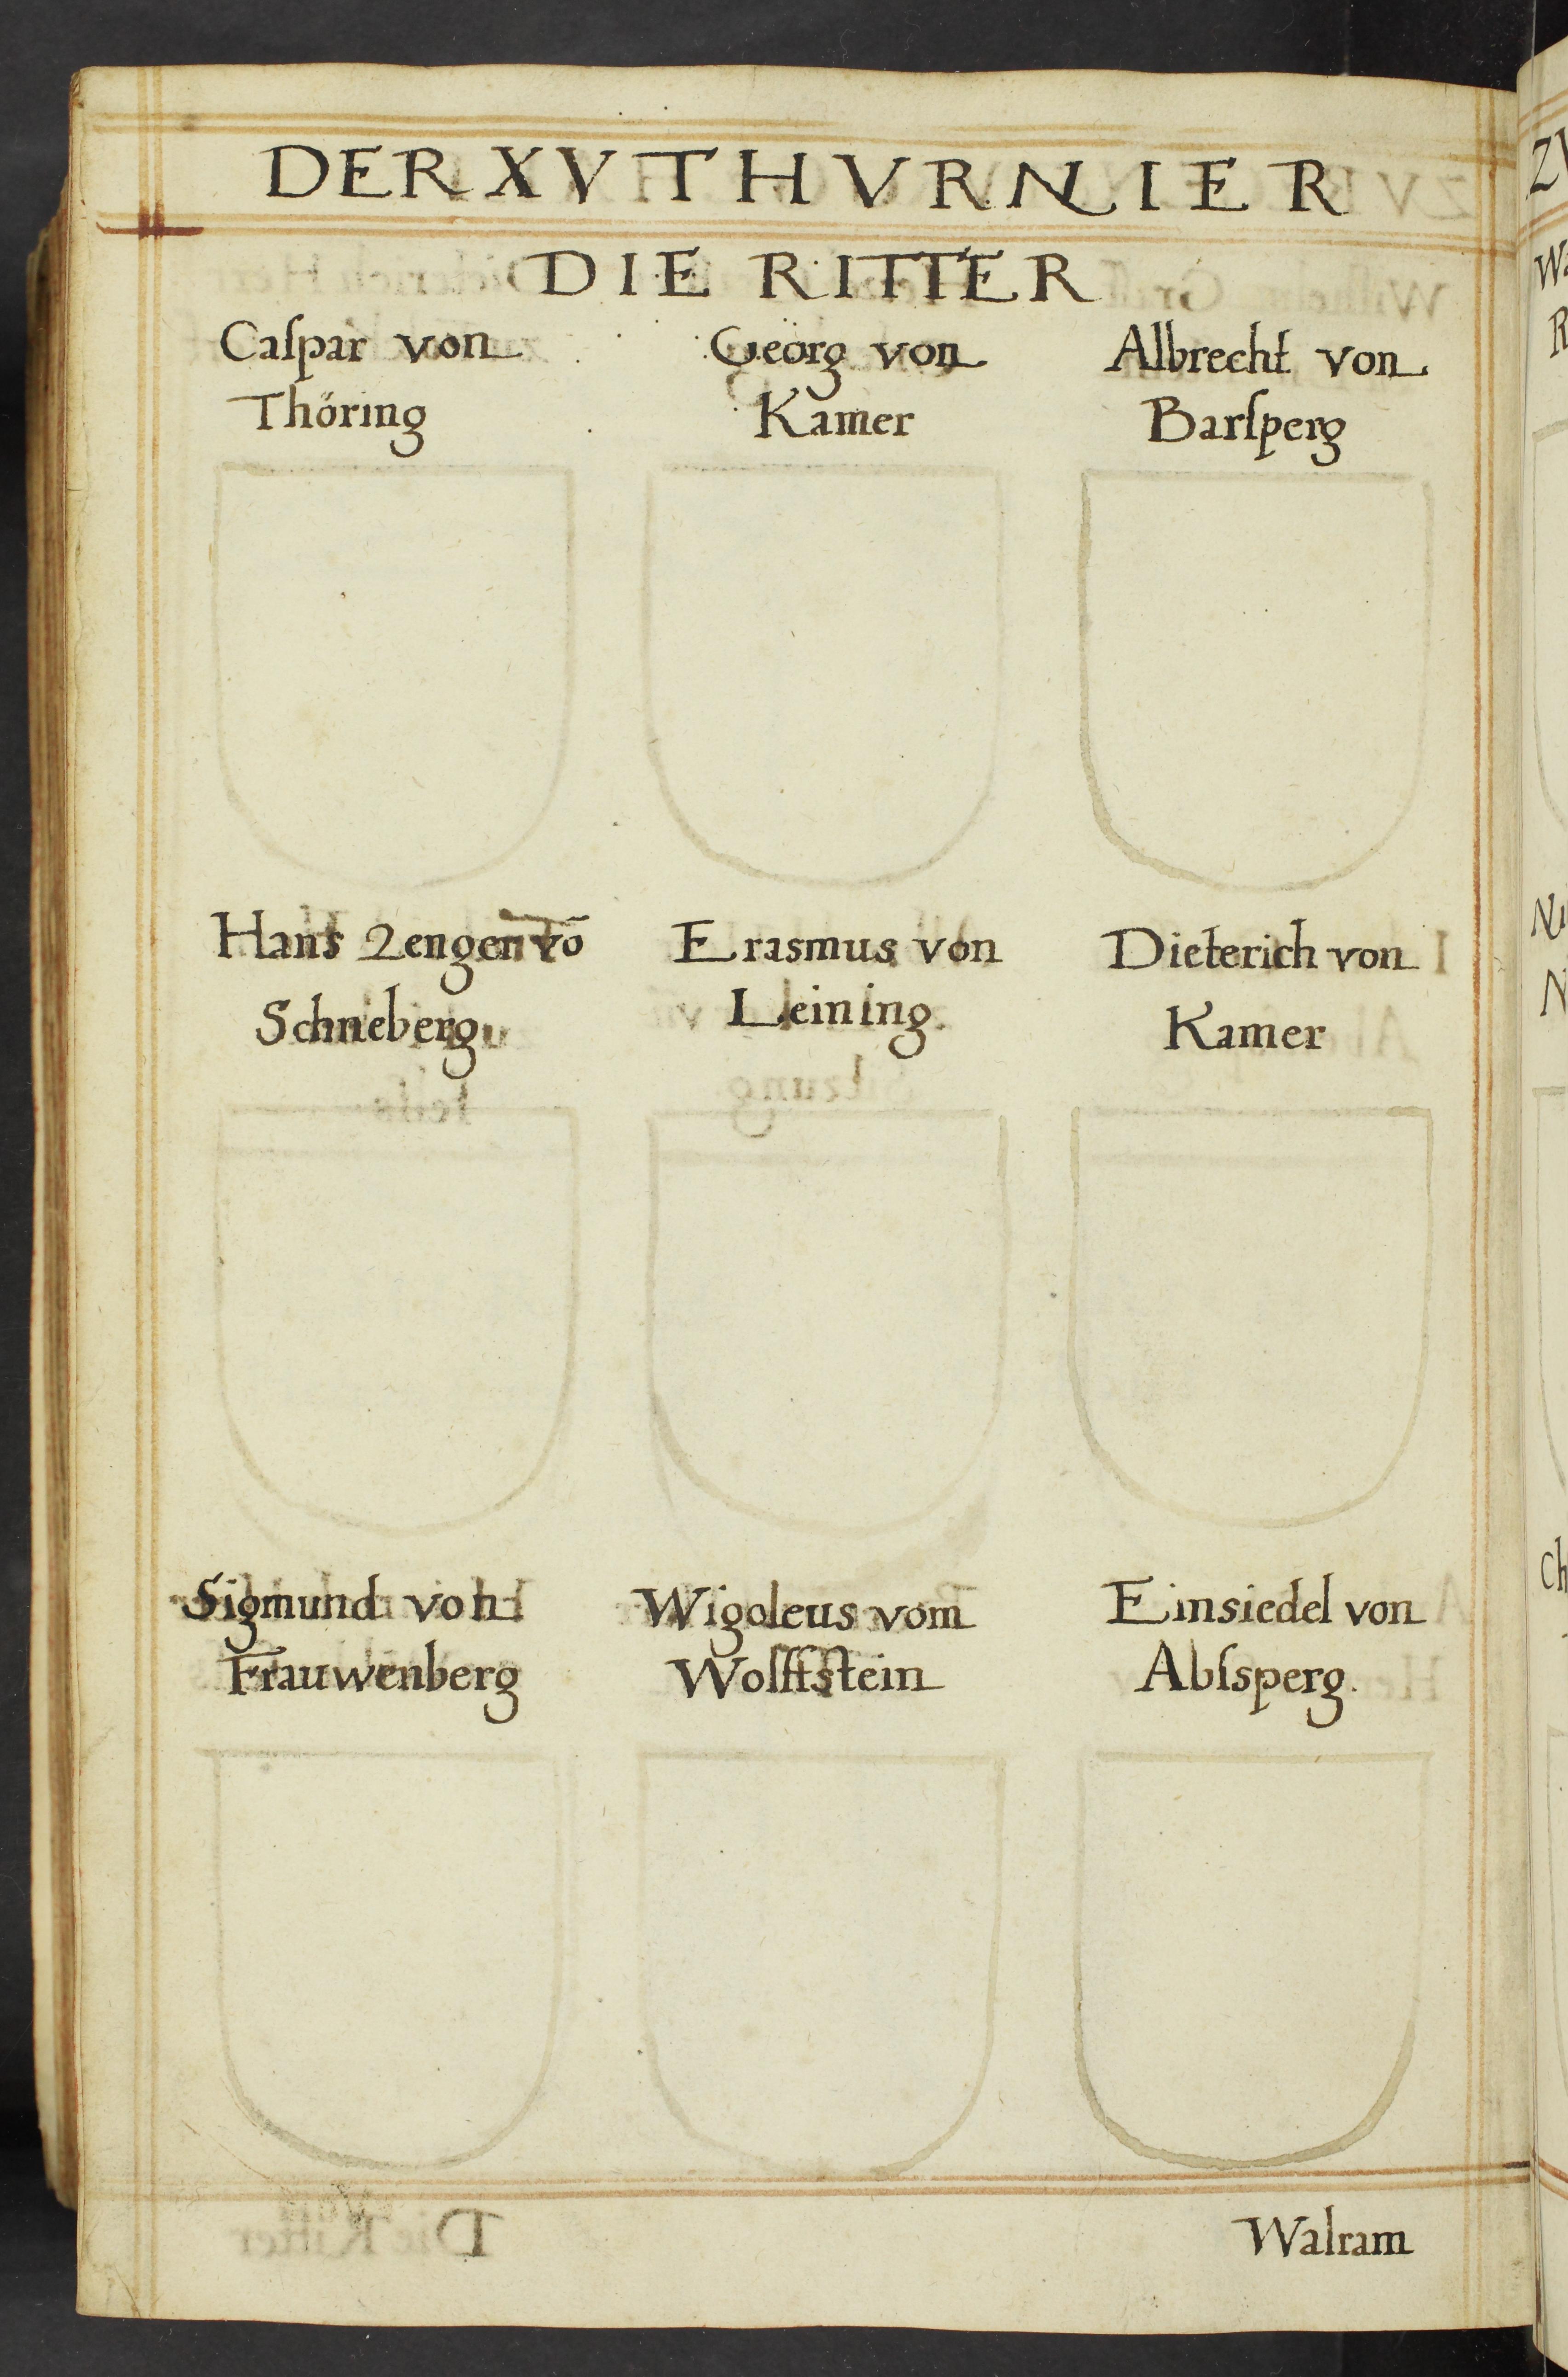 DER XV THVRNIER
DIE RITTER
Caſpar von
Thöring
Georg von
Kamer
Albrecht von
Barſperg
Hans Zengen võ
Schneberg
Erasmus von
Leining.
Dieterich von
Kamer
Sigmund von
Frauwenberg
Wigoleus vom
Wolffstein
Einsiedel von
Abſsperg.
Walram